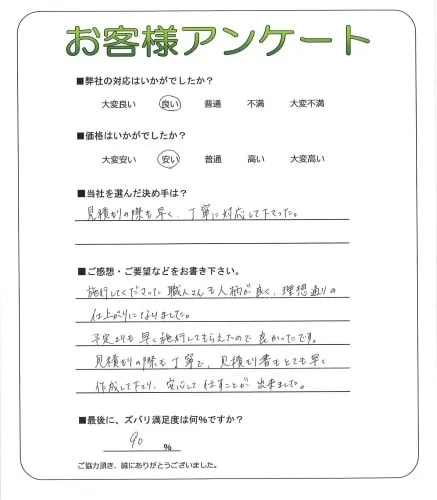 お客様アンケート
■弊社の対応はいかがでしたか?
大変良い 良い 普通 不満 大変不満
■価格はいかがでしたか?
大変安い 安い 普通 高い 大変高い
■当社を選んだ決め手は?
見積もりの際も早く、丁寧に対応して下さった。
■ご感想・ご要望などをお書き下さい。
施行してくださった職人さんも人柄が良く、理想通りの
仕上がりになりました。
予定よりも早く施行してもらえたので良かったです。
見積もりの際も丁寧で、見積り書もとても早く
作成して下さり、安心して任すことが出来ました。
■最後に、ズバリ満足度は何%ですか?
90 %
ご協力頂き、誠にありがとうございました。